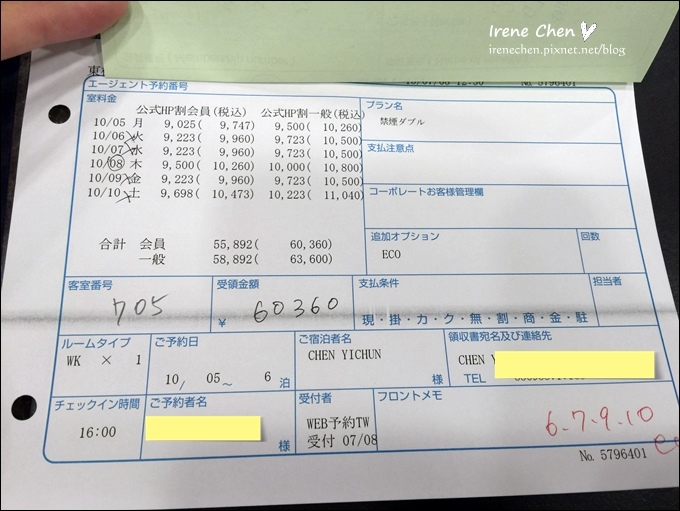 Irene Chen
irenechen.pixnet.net/blog
No. 5796401
エージェント予約番号
室料金
公式HP割会員(税込) 公式HP割一般(税込)
10/05 月 9,025( 9,747) 9,500( 10,260)
10/06 火 9,223( 9,960) 9,723( 10,500)
10/07 水 9,223( 9,960) 9,723( 10,500)
10/08 木 9,500( 10,260) 10,000( 10,800)
10/09 金 9,223( 9,960) 9,723( 10,500)
10/10 土 9,698( 10,473) 10,223( 11,040)
合計 会員 55,892( 60,360)
一般 58,892( 63,600)
プラン名
禁煙ダブル
支払注意点
コーポレートお客様管理欄
追加オプション 回数
ECO
客室番号 受領金額 支払条件 担当者
705 ¥ 60360
現・掛・カ・ク・無・割・商・金・駐
ルームタイプ ご予約日 ご宿泊者名 領収書宛名及び連絡先
WK × 1 10/ 05~ 6 泊 CHEN YICHUN 様 CHEN
TEL
チェックイン時間 ご予約者名 受付者 フロントメモ
16:00 様 WEB予約TW
受付 07/08
6.7.9.10
No. 5796401